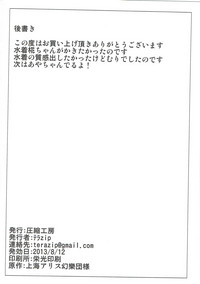 後書き
この度はお買い上げ頂きありがとうございます
水着椛ちゃんがかきたかったのです
水着の質感出したかったけどむりでしたのです
次はあやちゃんでるよ！
発行:圧縮工房
発行者:ﾃﾗzip
連絡先:terazip@gmail.com
発効日:2013/8/12
印刷所:栄光印刷
原作:上海アリス幻樂団様